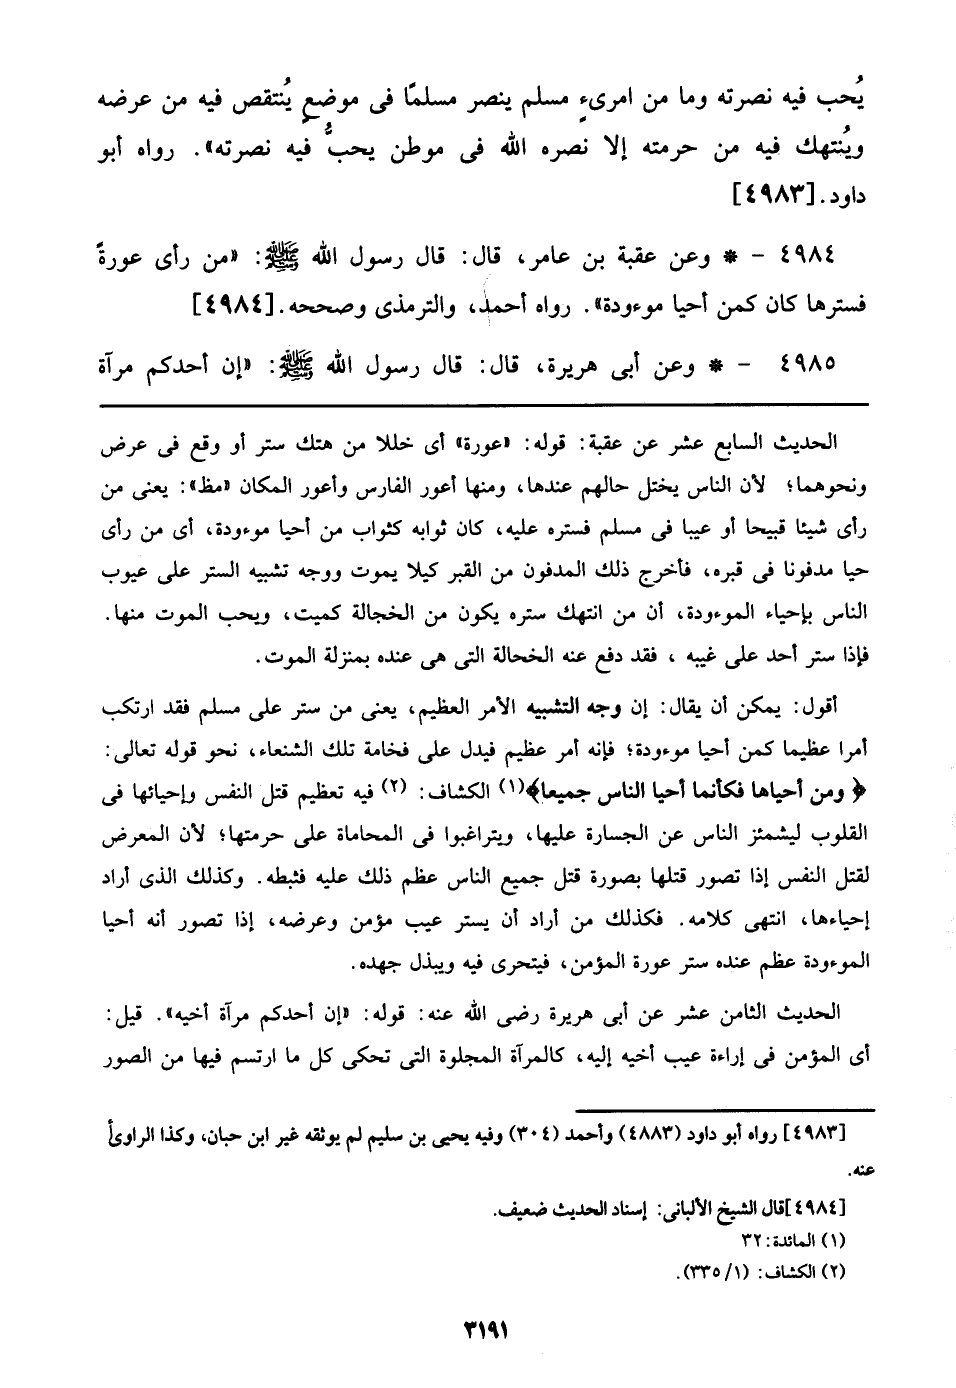 يُحب فيه نصرته وما من امرىءٍ مسلم ينصر مسلمًا فى موضعٍ يُنتقص فيه من عرضه
ويُنتهك فيه من حرمته إلا نصره الله فى موطن يحبُّ فيه نصرته». رواه أبو
داود. [٤٩٨٣]
٤٩٨٤ - * وعن عقبة بن عامر، قال: قال رسول الله ﷺ: «من رأى عورةً
فسترها كان كمن أحيا موءودة». رواه أحمد، والترمذى وصححه. [٤٩٨٤]
٤٩٨٥ - * وعن أبى هريرة، قال: قال رسول الله ﷺ: «إن أحدكم مرآة
الحديث السابع عشر عن عقبة: قوله: «عورة» أى خللا من هتك ستر أو وقع فى عرض
ونحوهما؛ لأن الناس يختل حالهم عندها، ومنها أعور الفارس وأعور المكان «مظ»: يعنى من
رأى شيئا قبيحا أو عيبا فى مسلم فستره عليه، كان ثوابه كثواب من أحيا موءودة، أى من رأى
حيا مدفونا فى قبره، فأخرج ذلك المدفون من القبر كيلا يموت ووجه تشبيه الستر على عيوب
الناس بإحياء الموءودة، أن من انتهك ستره يكون من الخجالة كميت، ويحب الموت منها.
فإذا ستر أحد على غيبه ، فقد دفع عنه الخحالة التى هى عنده بمنزلة الموت.
أقول: يمكن أن يقال: إن وجه التشبيه الأمر العظيم، يعنى من ستر على مسلم فقد ارتكب
أمرا عظيما كمن أحيا موءودة؛ فإنه أمر عظيم فيدل على فخامة تلك الشنعاء، نحو قوله تعالى:
﴿ ومن أحياها فكأنما أحيا الناس جميعا﴾(١) الكشاف: (٢) فيه تعظيم قتل النفس وإحيائها فى
القلوب ليشمئز الناس عن الجسارة عليها، ويتراغبوا فى المحاماة على حرمتها؛ لأن المعرض
لقتل النفس إذا تصور قتلها بصورة قتل جميع الناس عظم ذلك عليه فثبطه. وكذلك الذى أراد
إحياءها، انتهى كلامه. فكذلك من أراد أن يستر عيب مؤمن وعرضه، إذا تصور أنه أحيا
الموءودة عظم عنده ستر عورة المؤمن، فيتحرى فيه ويبذل جهده.
الحديث الثامن عشر عن أبى هريرة رضى الله عنه: قوله: «إن أحدكم مرآة أخيه». قيل:
أى المؤمن فى إراءة عيب أخيه إليه، كالمرآة المجلوة التى تحكى كل ما ارتسم فيها من الصور
[٤٩٨٣] رواه أبو داود (٤٨٨٣) وأحمد (٣٠٤) وفيه يحيى بن سليم لم يوثقه غير ابن حبان، وكذا الراوىُ
عنه.
[٤٩٨٤]قال الشيخ الألبانى: إسناد الحديث ضعيف.
(١) المائدة: ٣٢
(٢) الكشاف: (١/ ٣٣٥).
٣١٩١